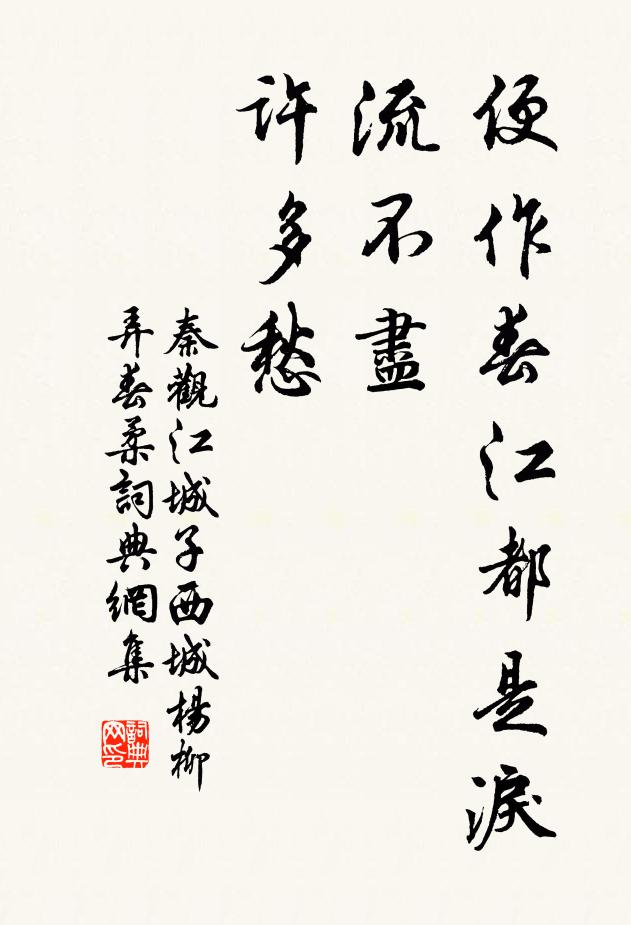 便作春江都是淚
流不盡
許多愁
秦觀江城子西城楊柳
弄春柔詞典網集
詞典
网印